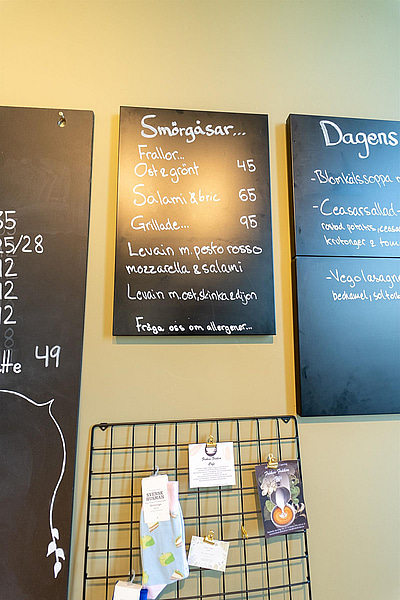 35
25/28
12
12
12
49
Smörgåsar...
Frallor...
Ost & grönt 45
Salami & brie 65
Grillade... 95
Levain m. pesto rosso
mozzarella & salami
Levain m. ost, skinka & dijon
Fråga oss om allergener...
Dagens
-Blomkålssoppa
-Ceasarsallad-
rostad potatis,
krutonger &
-Vegolasagne
bechamel,
SVENSK
HUSMAN